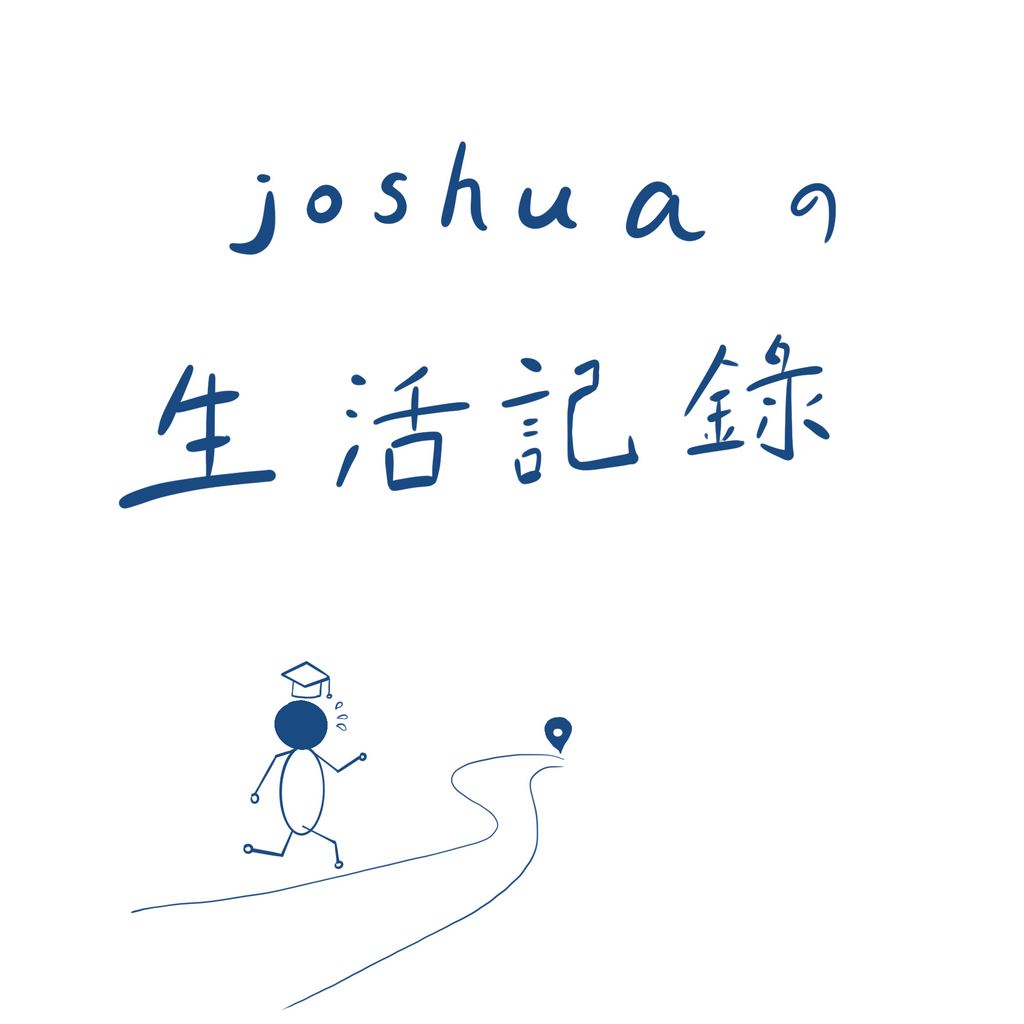 joshua の
生活記錄